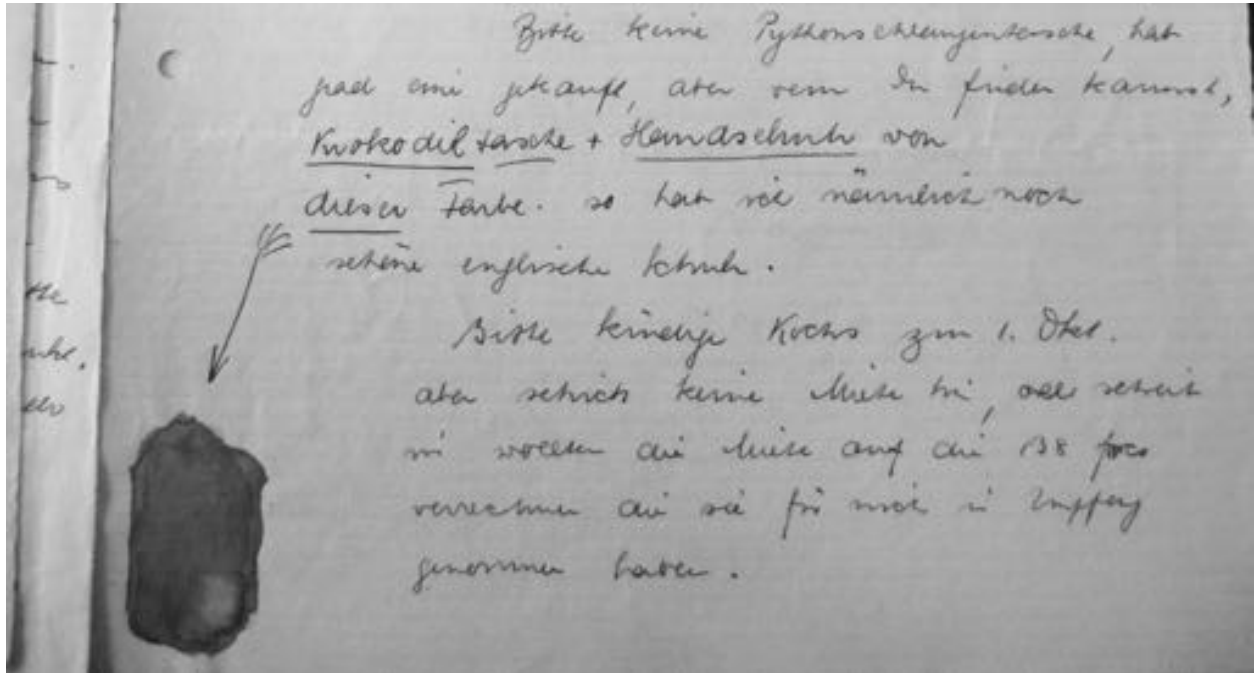 Bitte keine Pythonschlangentasche, hat
grad eine gekauft, aber wenn Du finden kannst,
Krokodiltasche + Handschuh von
dieser Farbe. so hat sie nämlich noch
schöne englische Schuh.
Bitte kündige Kochs zum 1. Okt.
aber schick keine Miete hin, oder schreib
wir wollten die Miete auf die 138 frcs
verrechnen die sie für mich in Empfang
genommen haben.